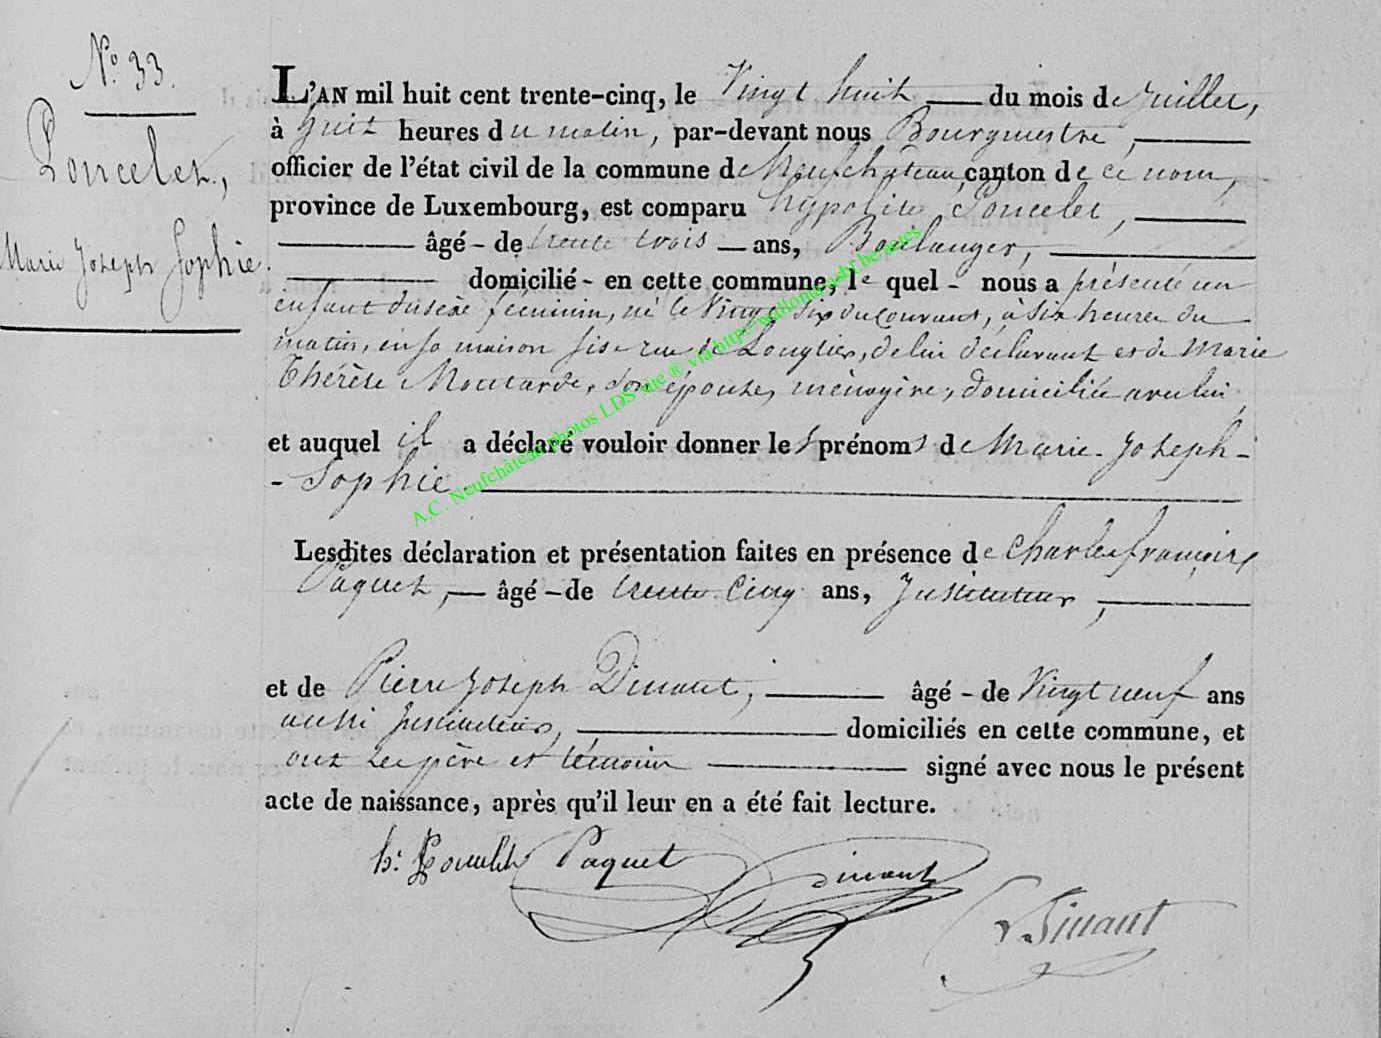 N.º 33.
Poncelet,
Marie Joseph Sophie.
L'AN mil huit cent trente-cinq, le Vingt huit du mois de juillet,
à huit heures du matin, par-devant nous Bourgmestre,
officier de l'état civil de la commune de Neufchâteau, canton de ce nom,
province de Luxembourg, est comparu hypolite Poncelet,
âgé - de trente trois ans, Boulanger,
domicilié - en cette commune, le quel - nous a présenté un
enfant du sexe féminin, né le Vingt six du courant, à six heures du
matin, en sa maison sise rue de Longlier, de lui déclarant et de Marie
Thérèse Moutarde, son épouse, ménagère, domiciliée avec lui,
et auquel il a déclaré vouloir donner les prénoms de Marie-Joseph-
-Sophie.
Lesdites déclaration et présentation faites en présence de Charles françois
Paquet, âgé - de trente cinq ans, Instituteur,
et de Pierre Joseph Dinant, âgé - de Vingt neuf ans
aussi Instituteur, domiciliés en cette commune, et
ont les père et témoins signé avec nous le présent
acte de naissance, après qu'il leur en a été fait lecture.
h: Poncelet Paquet Dinant
Dinant
A.C. Neufchâteau photos LDS site ® via http://wallonia-asbl.be/actes